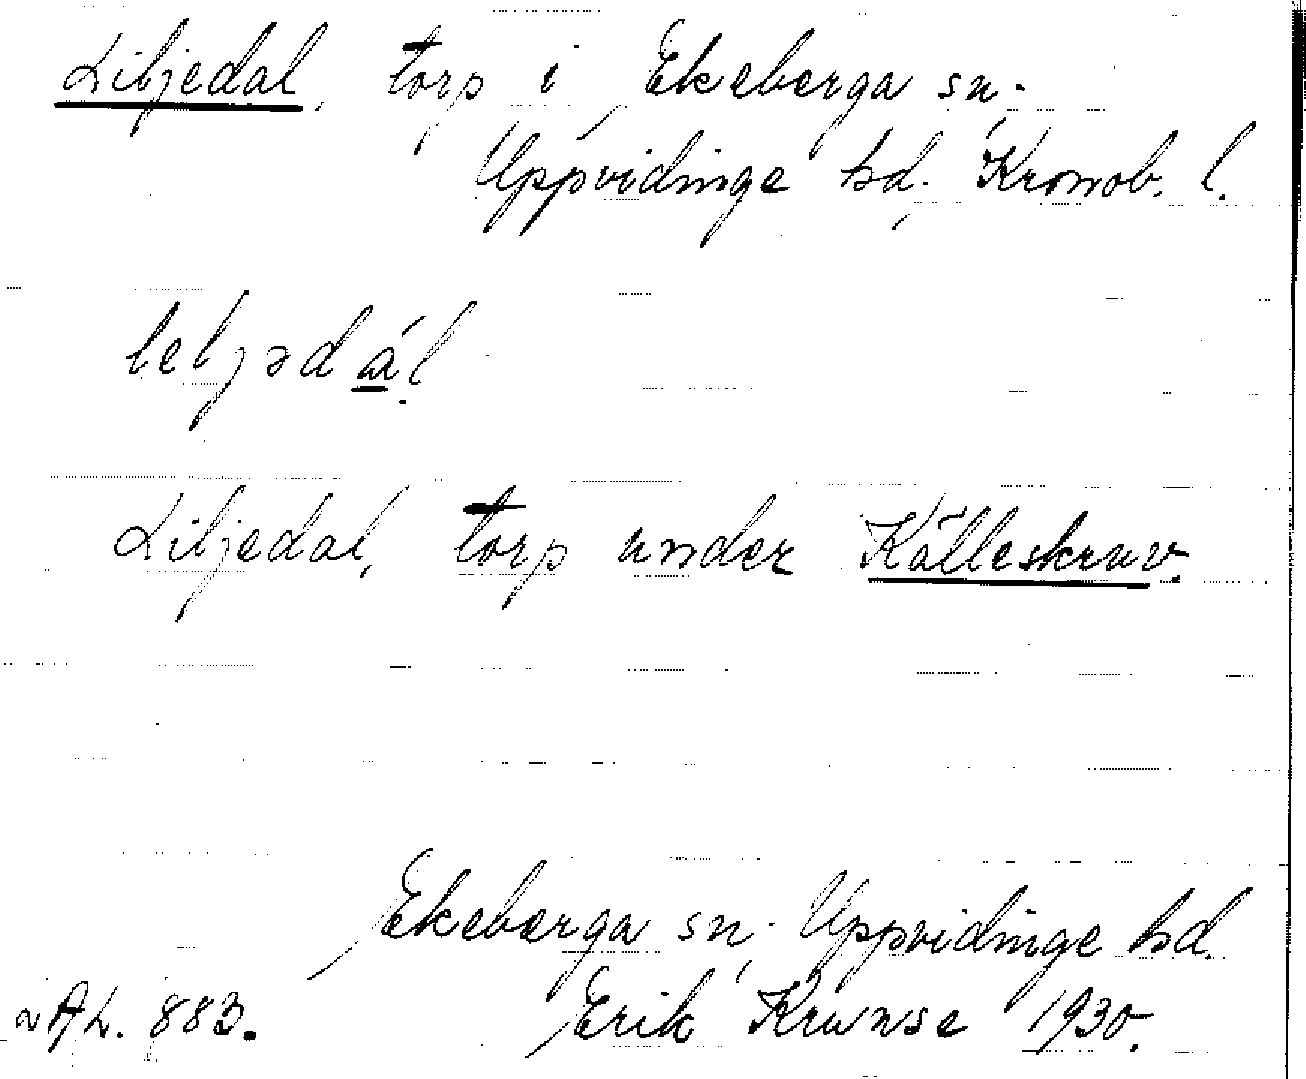 Liljedal, torp i Ekeberga sn.
Uppvidinge hd. Kronob. l.
leljədál.
Liljedal, torp under Källeskruv.
Ekeberga sn. Uppvidinge hd.
AL. 883. Erik Krunse 1930.